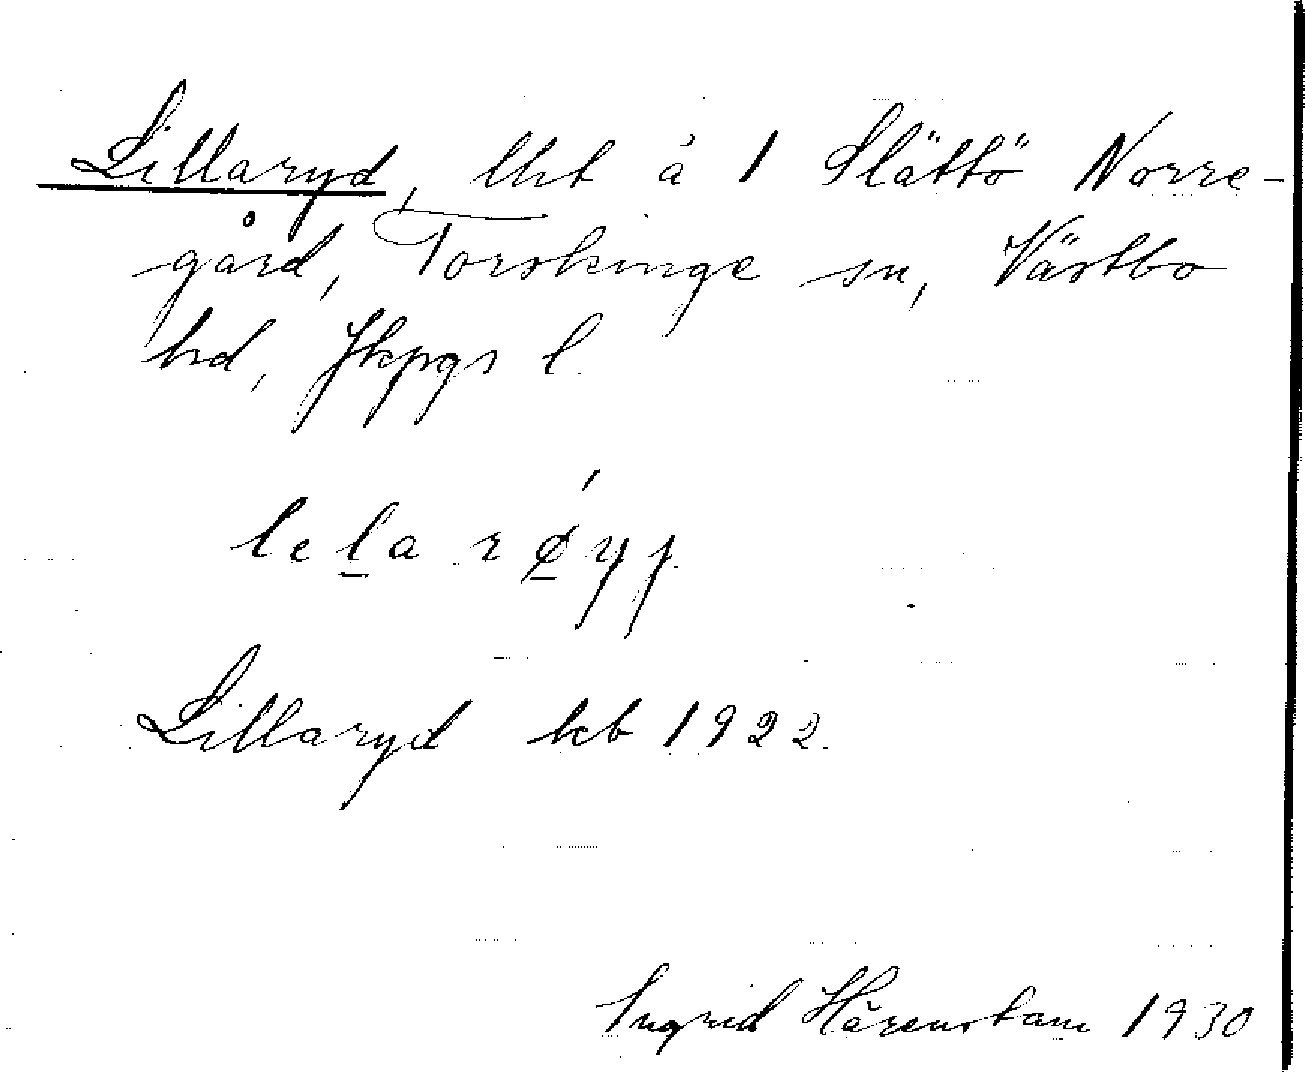 Lillaryd, lht å 1 Slättö Norre-
gård, Torskinge sn, Västbo
hd, Jkpgs l.
lela røyj
Lillaryd kb 1922.
Ingrid Härenstam 1930